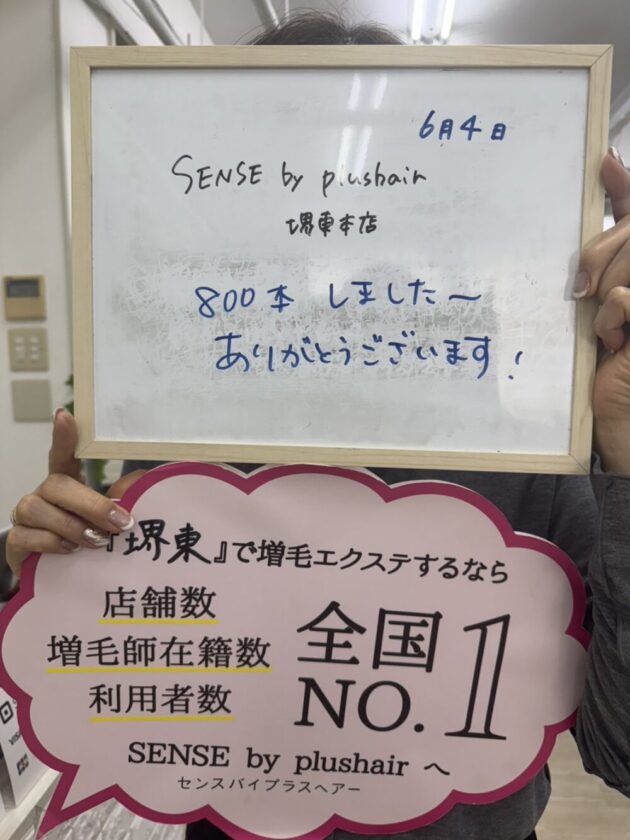 6月4日
SENSE by plushair
堺東本店
800本 しました〜
ありがとうございます!
『堺東』で増毛エクステするなら
店舗数
増毛師在籍数
利用者数
全国
NO.1
SENSE by plushair へ
センスバイプラスヘアー